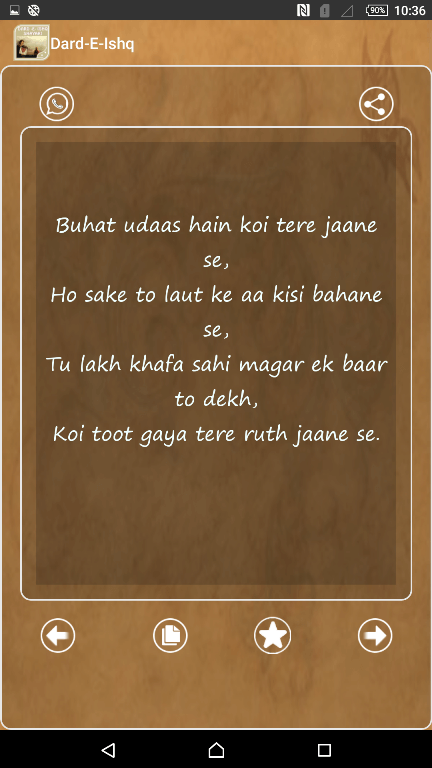 90%
10:36
Dard-E-Ishq
Buhat udaas hain koi tere jaane
se,
Ho sake to laut ke aa kisi bahane
se,
Tu lakh khafa sahi magar ek baar
to dekh,
Koi toot gaya tere ruth jaane se.